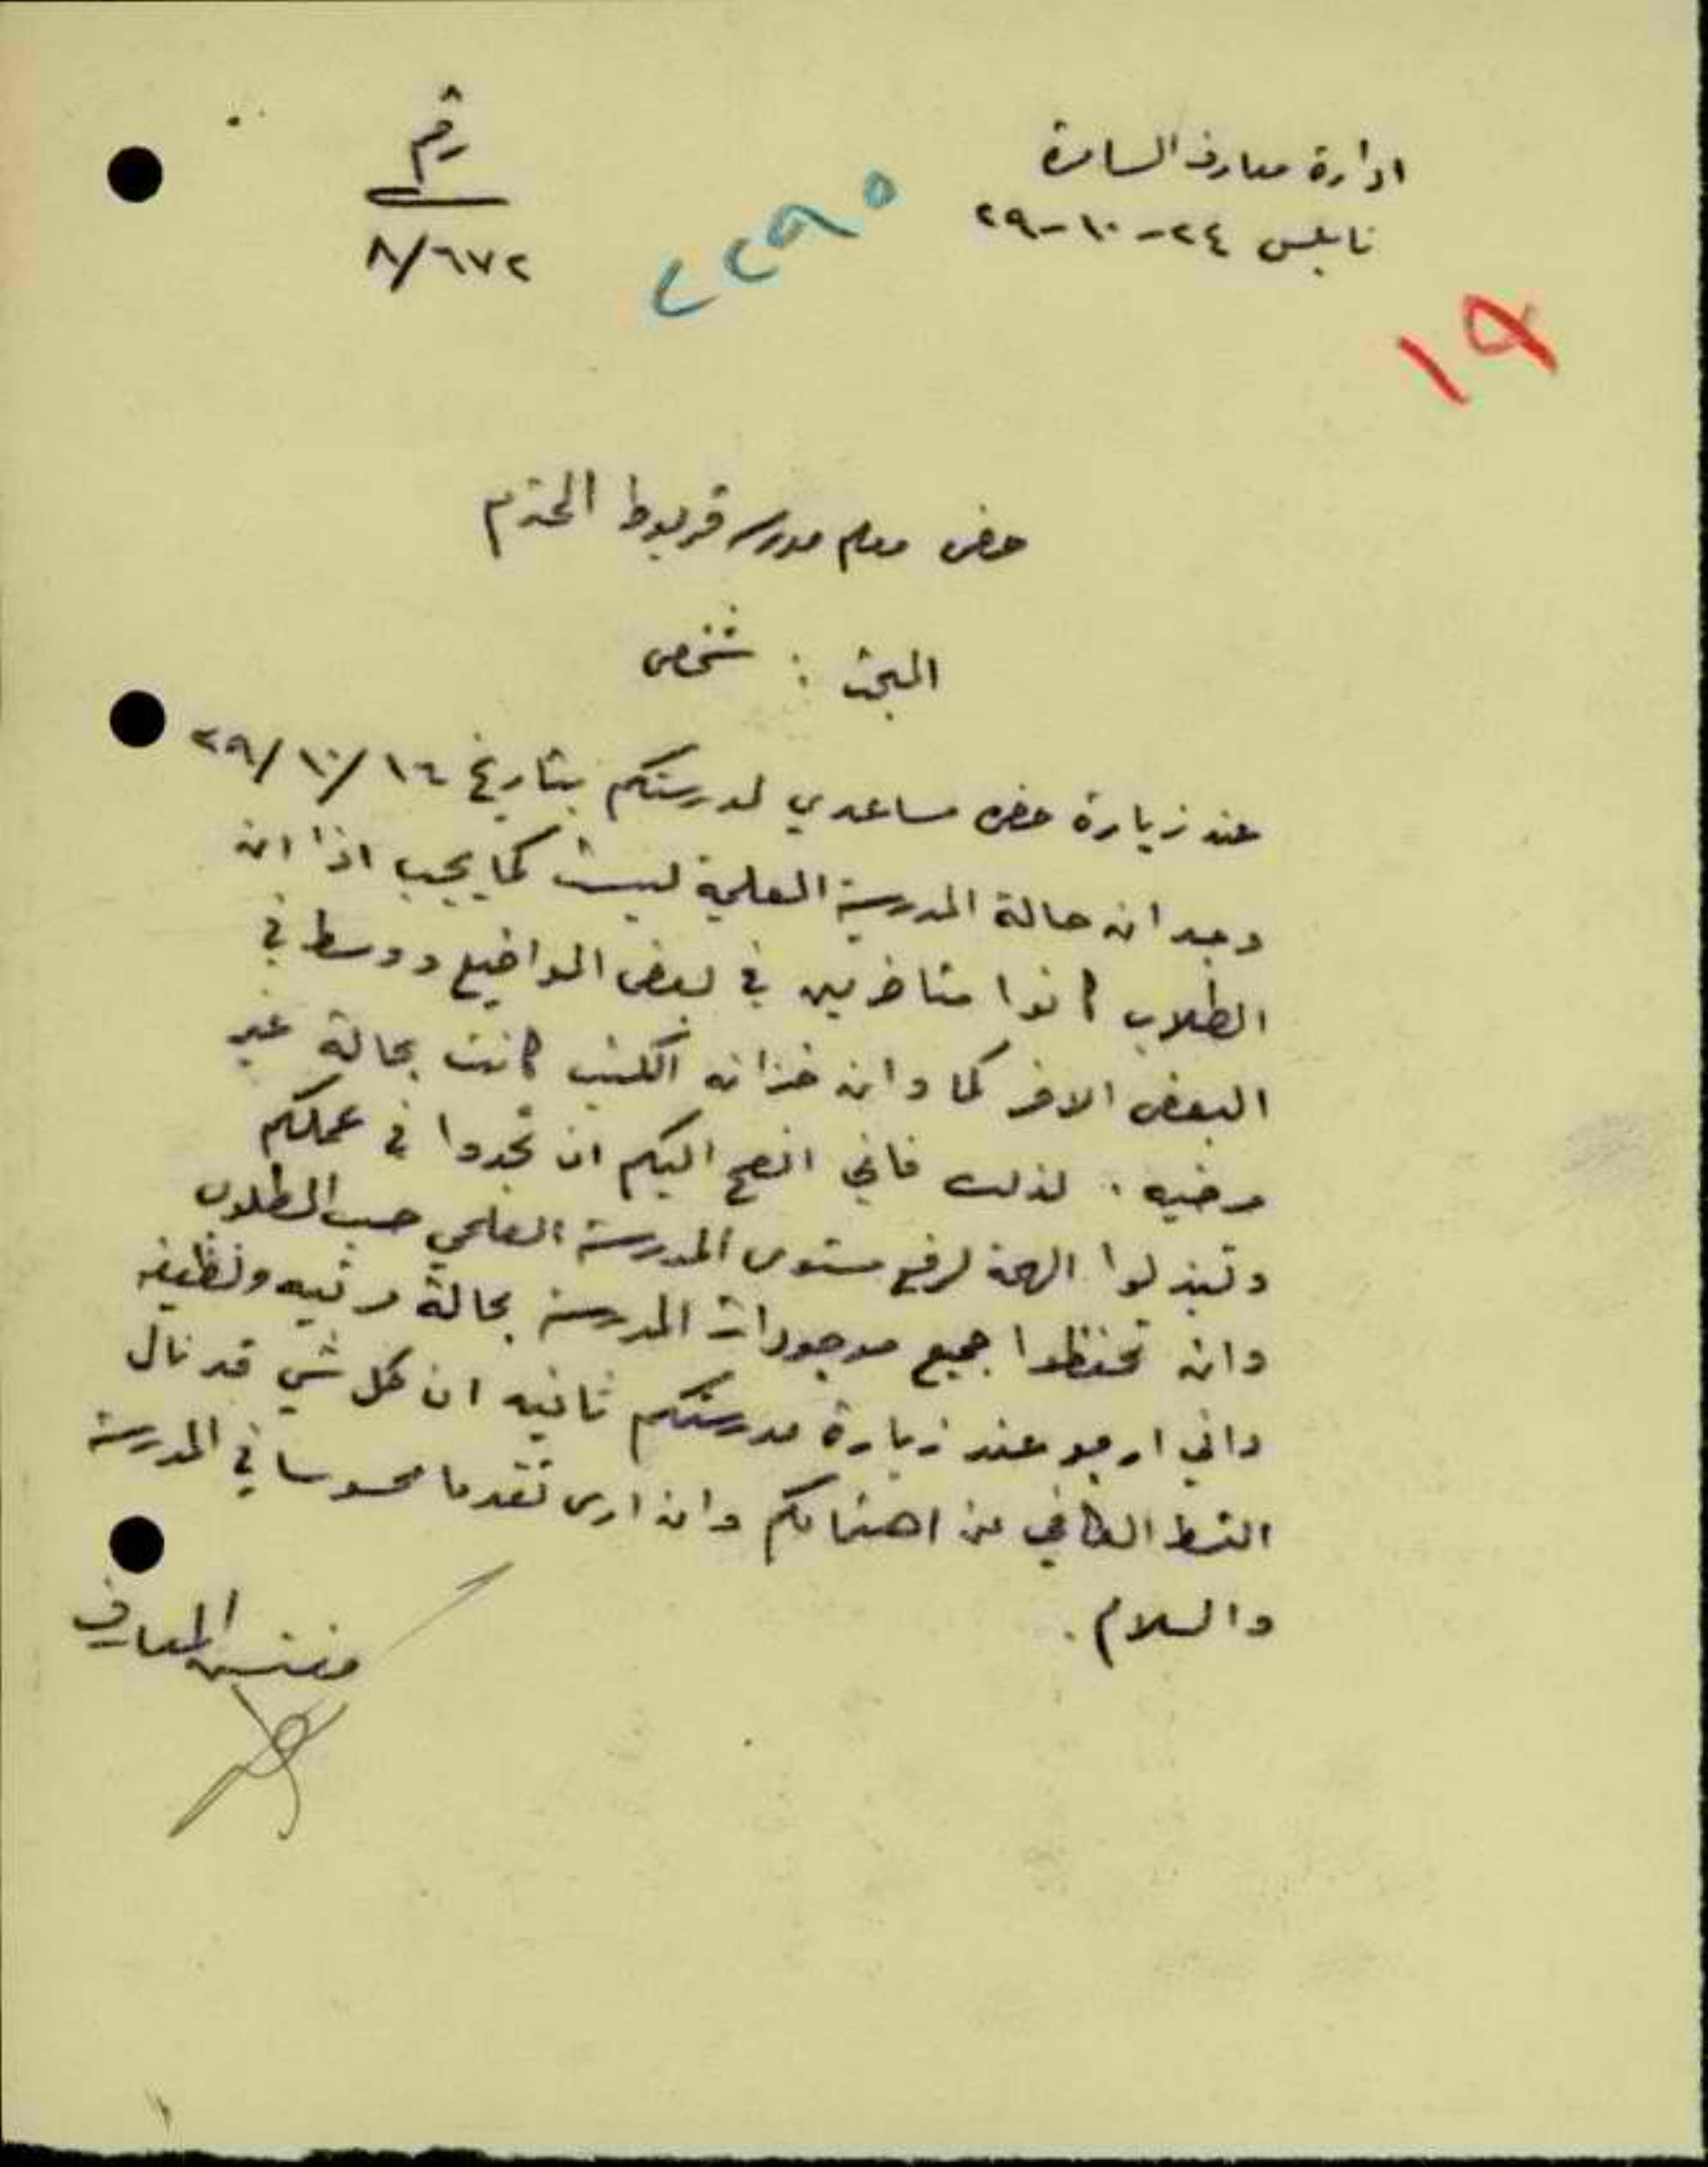 ادارة معارف السامرة
نابلس ٢٤-١٠-٢٩
رقم
٨/٦٧٢
١٩
حضرة معلم مدرسة قريوط المحترم
البحث : شخصي
عند زيارة حضرة مساعدي لمدرستكم بتاريخ ١٦/١٠/٢٩
وجد ان حالة المدرسة العلمية ليست كما يجب اذا ان
الطلاب كانوا متاخرين في بعض المواضيع ووسط في
البعض الاخر كما وان خزانة الكتب كانت بحالة غير
مرضيه . لذلك فاني انصح اليكم ان تجدوا في عملكم
وتبذلوا الهمة لرفع مستوى المدرسة العلمي حسب المطلوب
وان تحفظوا جميع موجودات المدرسة بحالة مرتبه ونظيفه
واني ارجو عند زيارة مدرستكم ثانيه ان كل شي قد نال
القسط الكافي من اهتمامكم وان ارى تقدما محسوسا في المدرسة
والسلام .
مفتش المعارف